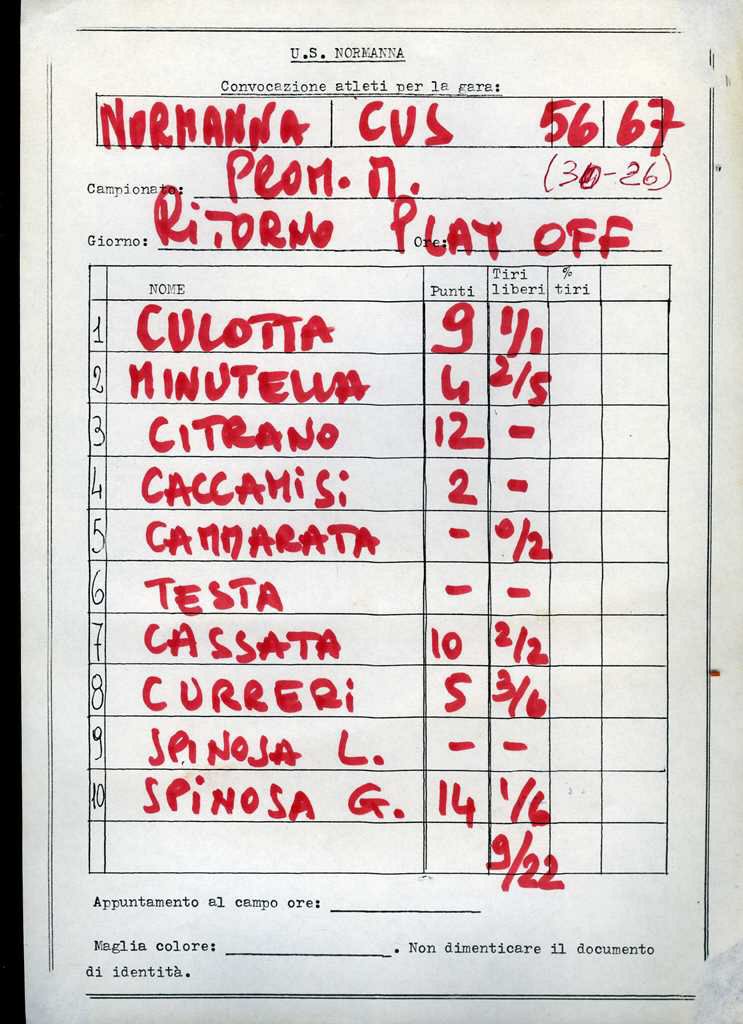 U.S. NORMANNA
Convocazione atleti per la gara:
NORMANNA CUS 56 67
(30-26)
Campionato: PROM. M.
Giorno: RITORNO Ore: PLAY OFF
NOME Punti Tiri liberi % tiri
1 CULOTTA 9 1/1
2 MINUTELLA 4 2/5
3 CITRANO 12 -
4 CACCAMISI 2 -
5 CAMMARATA - 0/2
6 TESTA - -
7 CASSATA 10 2/2
8 CURRERI 5 3/6
9 SPINOSA L. - -
10 SPINOSA G. 14 1/6
9/22
Appuntamento al campo ore:
Maglia colore: . Non dimenticare il documento
di identità.